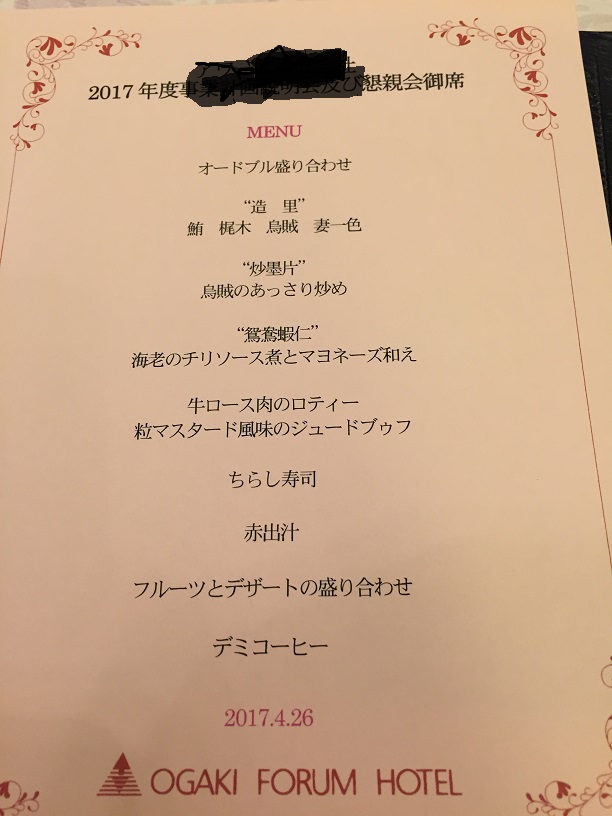 2017年度事業計画説明会及び懇親会御席
MENU
オードブル盛り合わせ
“造　里”
鮪　梶木　烏賊　妻一色
“炒墨片”
烏賊のあっさり炒め
“鴛鴦蝦仁”
海老のチリソース煮とマヨネーズ和え
牛ロース肉のロティー
粒マスタード風味のジュードブゥフ
ちらし寿司
赤出汁
フルーツとデザートの盛り合わせ
デミコーヒー
2017.4.26
OGAKI FORUM HOTEL